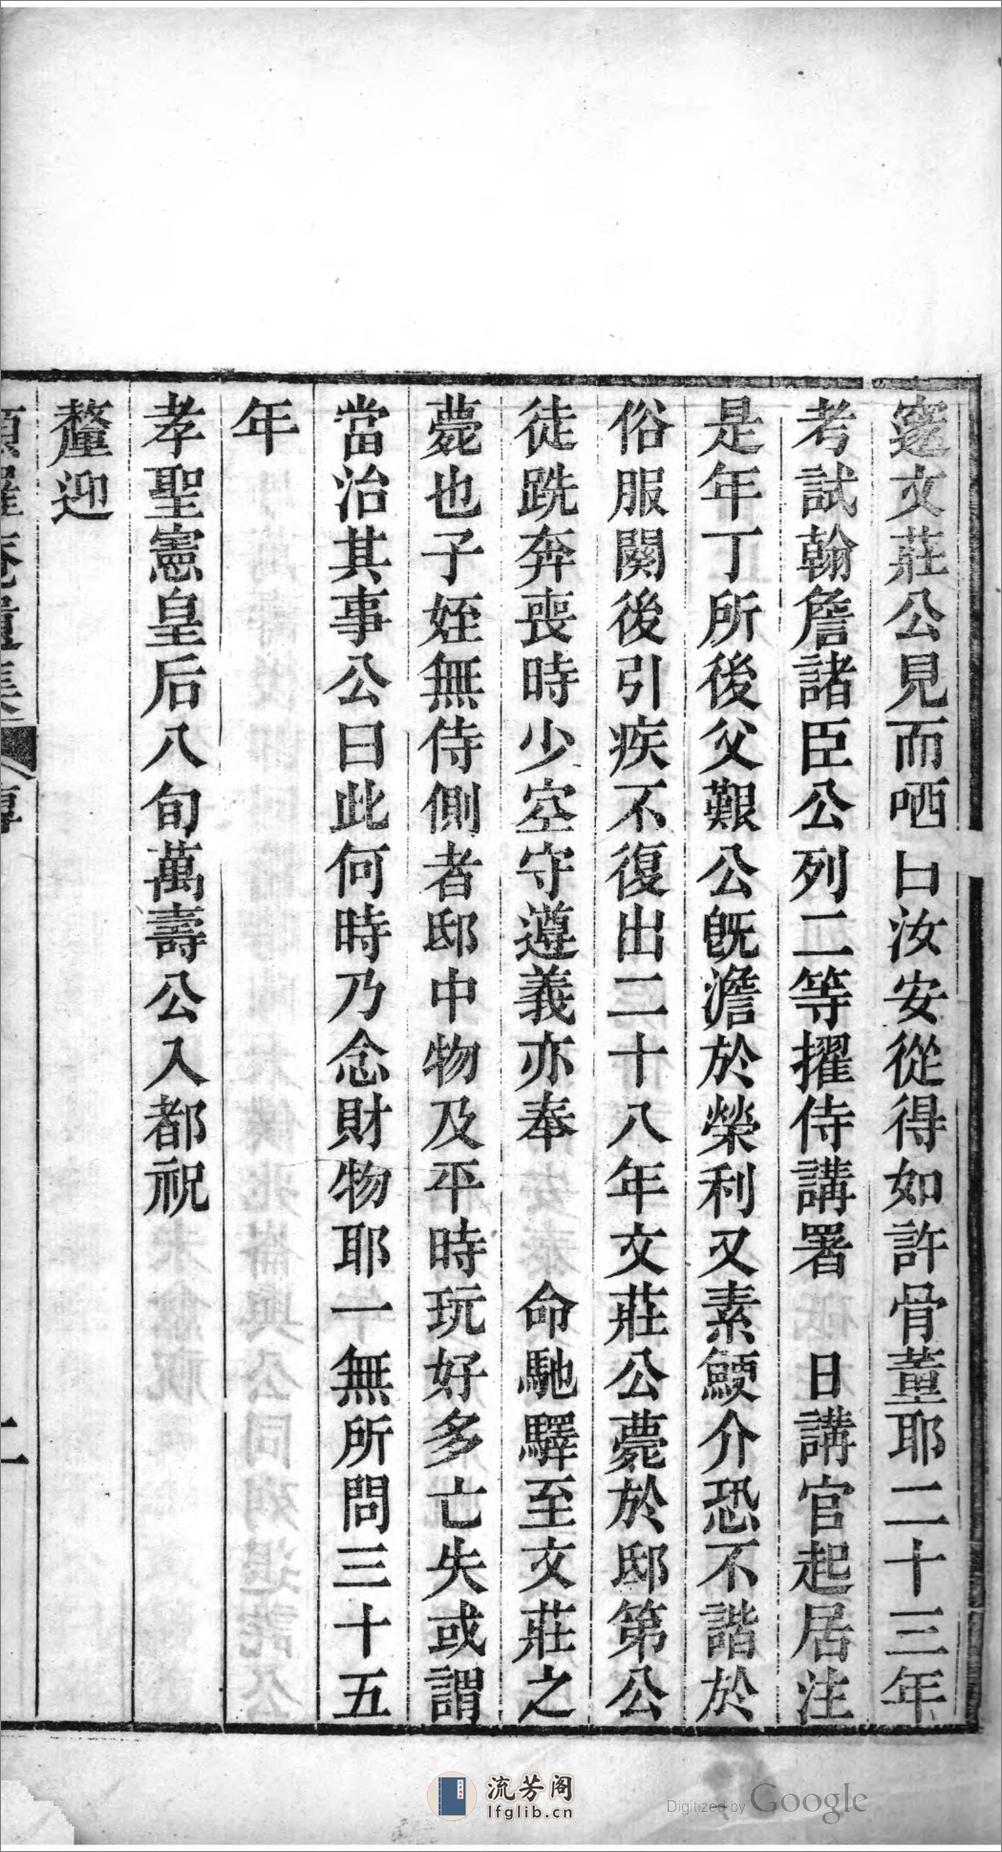 邃文莊公見而哂曰汝安從得如許骨董耶二十三年
考試翰詹諸臣公列二等擢侍講署 日講官起居注
是年丁所後父艱公旣澹於榮利又素鯁介恐不諧於
俗服闋後引疾不復出二十八年文莊公薨於邸第公
徒跣奔喪時少空守遵義亦奉 命馳驛至文莊之
薨也子姪無侍側者邸中物及平時玩好多亡失或謂
當治其事公曰此何時乃念財物耶一無所問三十五
年
孝聖憲皇后八旬萬壽公入都祝
釐迎
頻羅庵遺集 傳 二
流芳阁
lfglib.cn
Digitized by Google